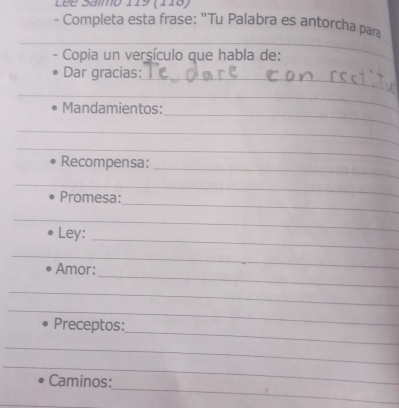 Lee Salmo 119 (118)
- Completa esta frase: "Tu Palabra es antorcha para
- Copia un versículo que habla de:
• Dar gracias: Te dare con
• Mandamientos:
• Recompensa:
• Promesa:
• Ley:
• Amor:
• Preceptos:
• Caminos: